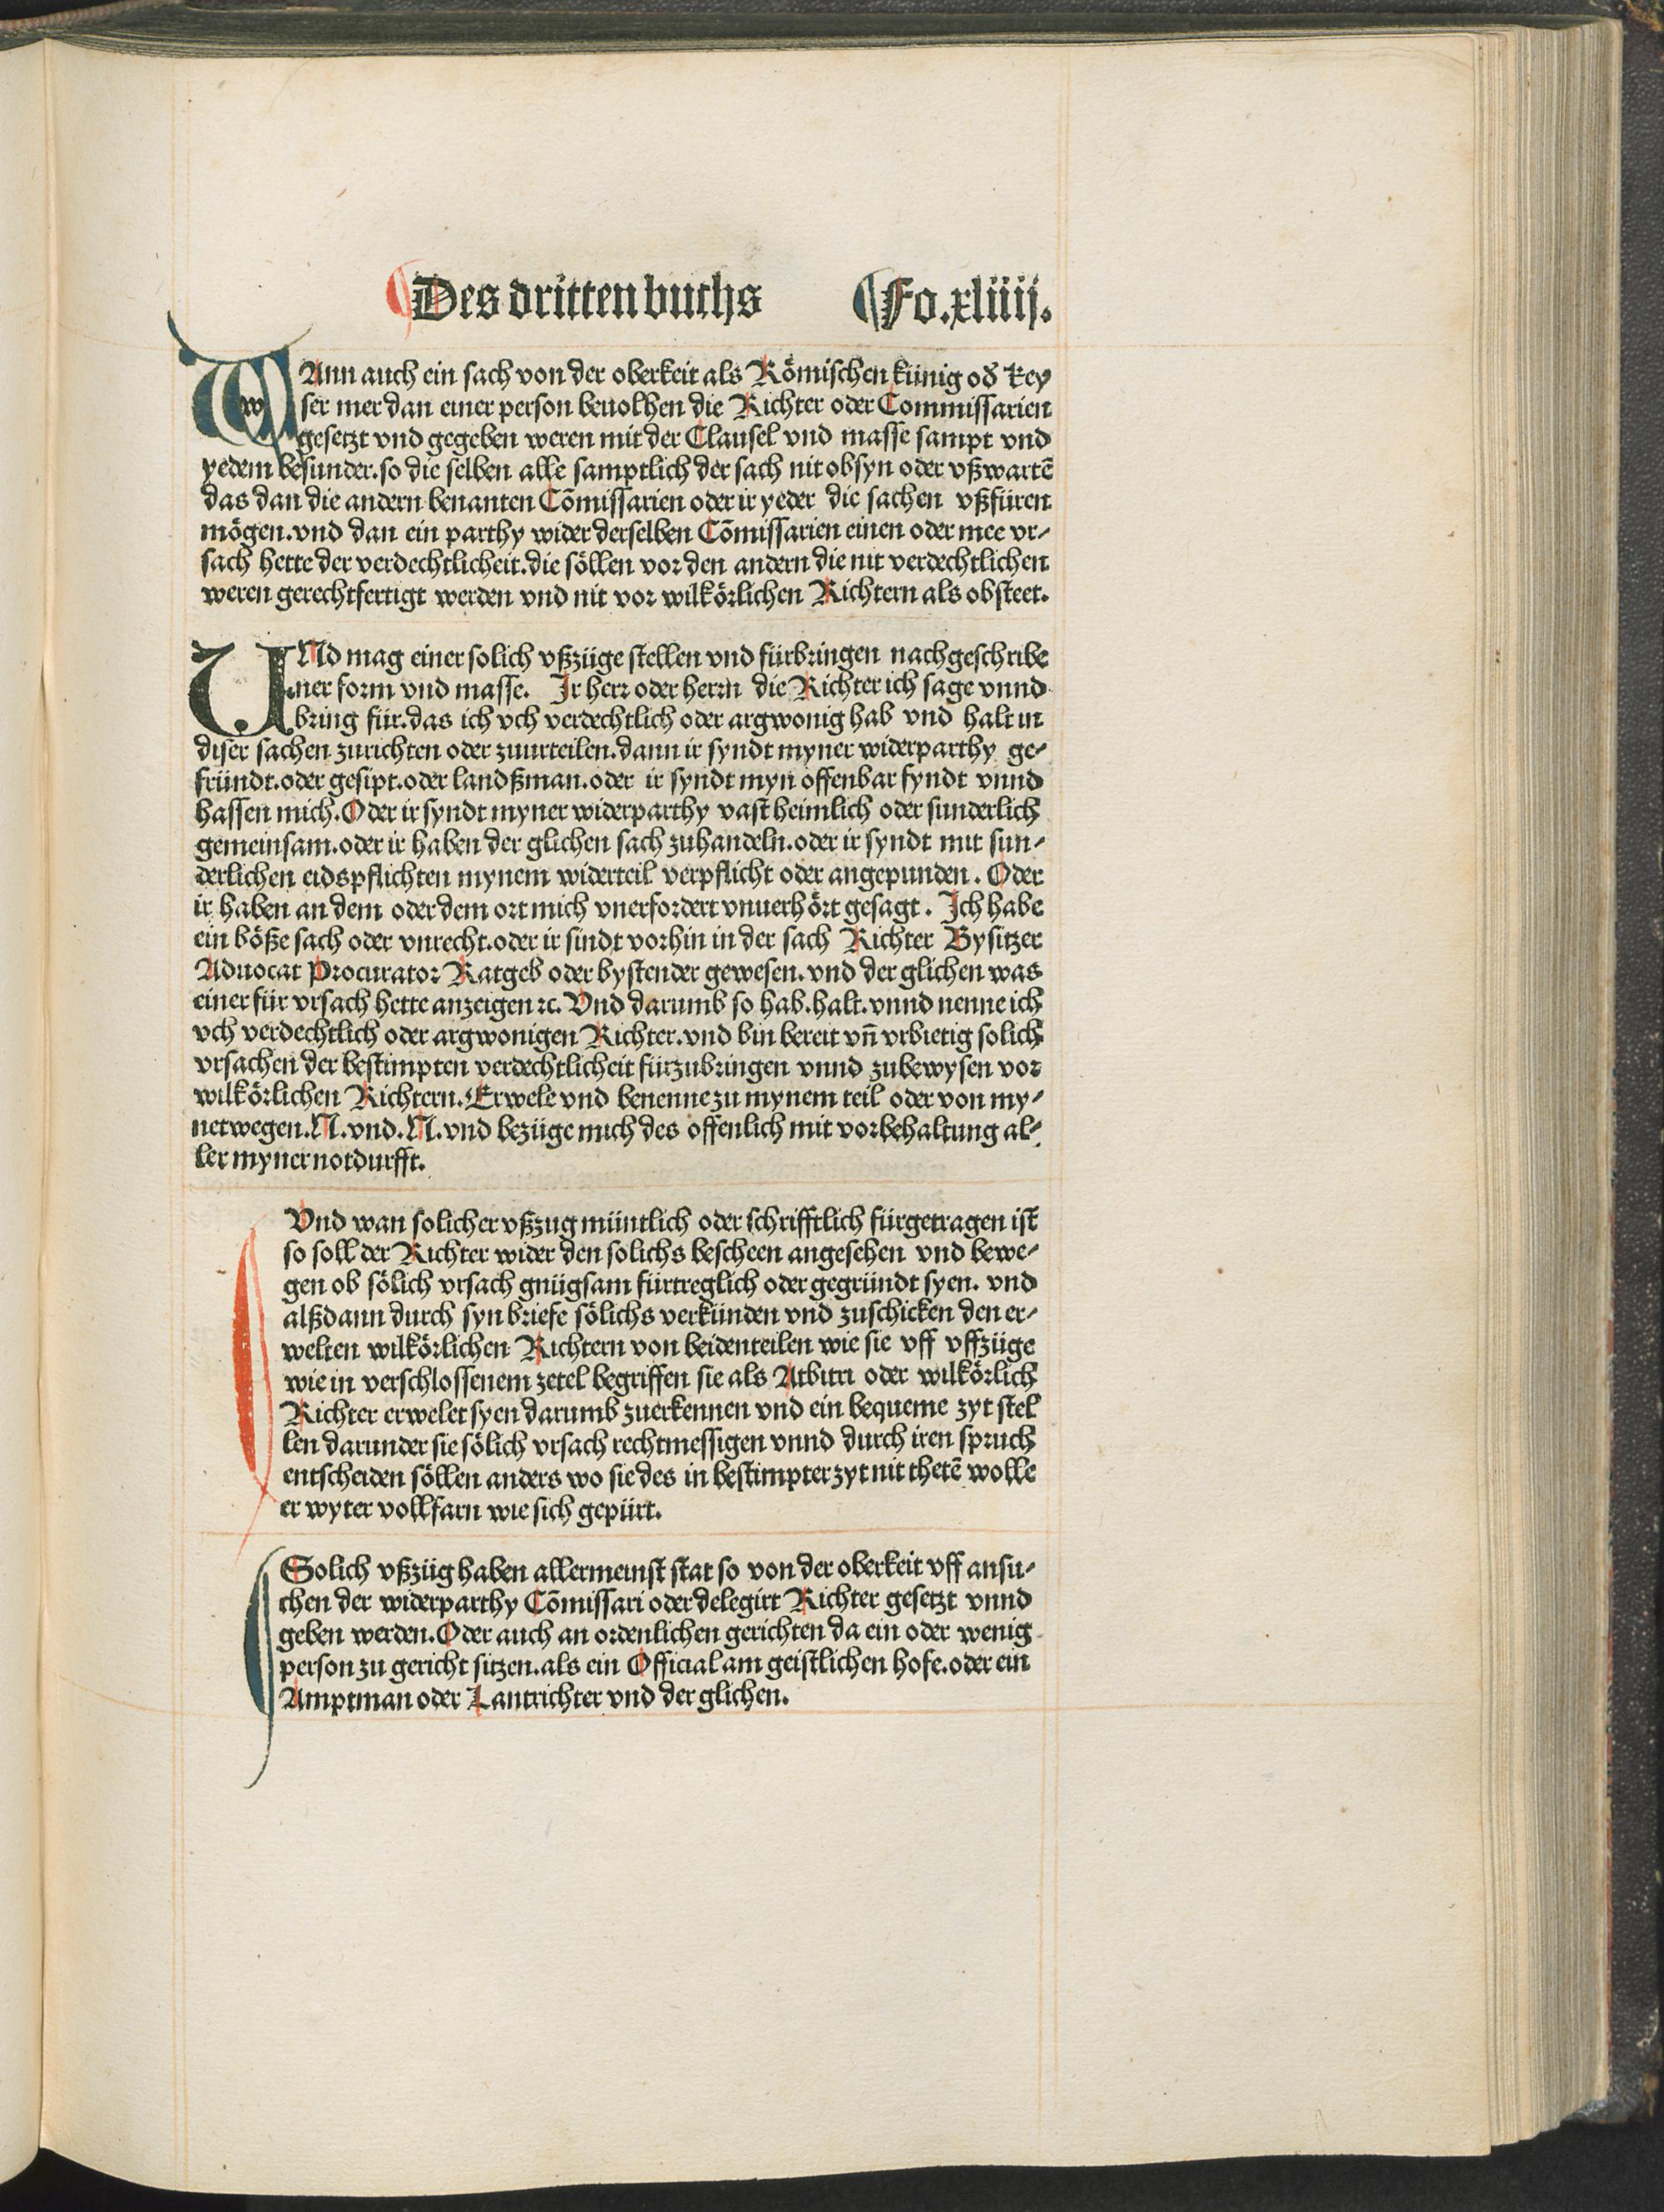 Des dritten buchs Fo.xliiij.
WAnn auch ein sach von der oberkeit als Römischen künig od̕ key
ser mer dan einer person beuolhen die Richter oder Commissarien
gesetzt vnd gegeben weren mit der Clausel vnd masse sampt vnd
yedem besunder. so die selben alle samptlich der sach nit obsyn oder vßwartē
das dan die andern benanten Cōmissarien oder ir yeder die sachen vßfüren
mögen. vnd dan ein parthy wider derselben Cōmissarien einen oder mee vr⸗
sach hette der verdechtlicheit. die söllen vor den andern die nit verdechtlichen
weren gerechtfertigt werden vnd nit vor wilkörlichen Richtern als obsteet.
UNd mag einer solich vßzüge stellen vnd fürbringen nachgeschribe
ner form vnd masse. Ir herr oder herrn die Richter ich sage vnnd
bring für. das ich vch verdechtlich oder argwonig hab vnd halt in
diser sachen zurichten oder zuurteilen. dann ir syndt myner widerparthy ge⸗
fründt. oder gesipt. oder landßman. oder ir syndt myn offenbar fyndt vnnd
hassen mich. Oder ir syndt myner widerparthy vast heimlich oder sunderlich
gemeinsam. oder ir haben der glichen sach zuhandeln. oder ir syndt mit sun⸗
derlichen eidspflichten mynem widerteil verpflicht oder angepunden. Oder
ir haben an dem oder dem ort mich vnerfordert vnuerhört gesagt. Ich habe
ein böße sach oder vnrecht. oder ir sindt vorhin in der sach Richter Bysitzer
Aduocat Procurator Ratgeb oder bystender gewesen. vnd der glichen was
einer für vrsach hette anzeigen ꝛc. Vnd darumb so hab. halt. vnnd nenne ich
vch verdechtlich oder argwonigen Richter. vnd bin bereit vn̄ vrbietig solich
vrsachen der bestimpten verdechtlicheit fürzubringen vnnd zubewysen vor
wilkörlichen Richtern. Erwele vnd benenne zu mynem teil oder von my⸗
netwegen. N. vnd. N. vnd bezüge mich des offenlich mit vorbehaltung al⸗
ler myner notdurfft.
Vnd wan solicher vßzug müntlich oder schrifftlich fürgetragen ist
so soll der Richter wider den solichs bescheen angesehen vnd bewe⸗
gen ob sölich vrsach gnügsam fürtreglich oder gegründt syen. vnd
alßdann durch syn briefe sölichs verkünden vnd zuschicken den er⸗
welten wilkörlichen Richtern von beidenteilen wie sie vff vffzüge
wie in verschlossenem zetel begriffen sie als Arbitri oder wilkörlich
Richter erwelet syen darumb zuerkennen vnd ein bequeme zyt stel
len darunder sie sölich vrsach rechtmessigen vnnd durch iren spruch
entscheiden söllen anders wo sie des in bestimpter zyt nit thetē wolle
er wyter vollfarn wie sich gepürt.
Solich vßzüg haben allermeinst stat so von der oberkeit vff ansu⸗
chen der widerparthy Cōmissari oder delegirt Richter gesetzt vnnd
geben werden. Oder auch an ordenlichen gerichten da ein oder wenig
person zu gericht sitzen. als ein Official am geistlichen hofe. oder ein
Amptman oder Lantrichter vnd der glichen.